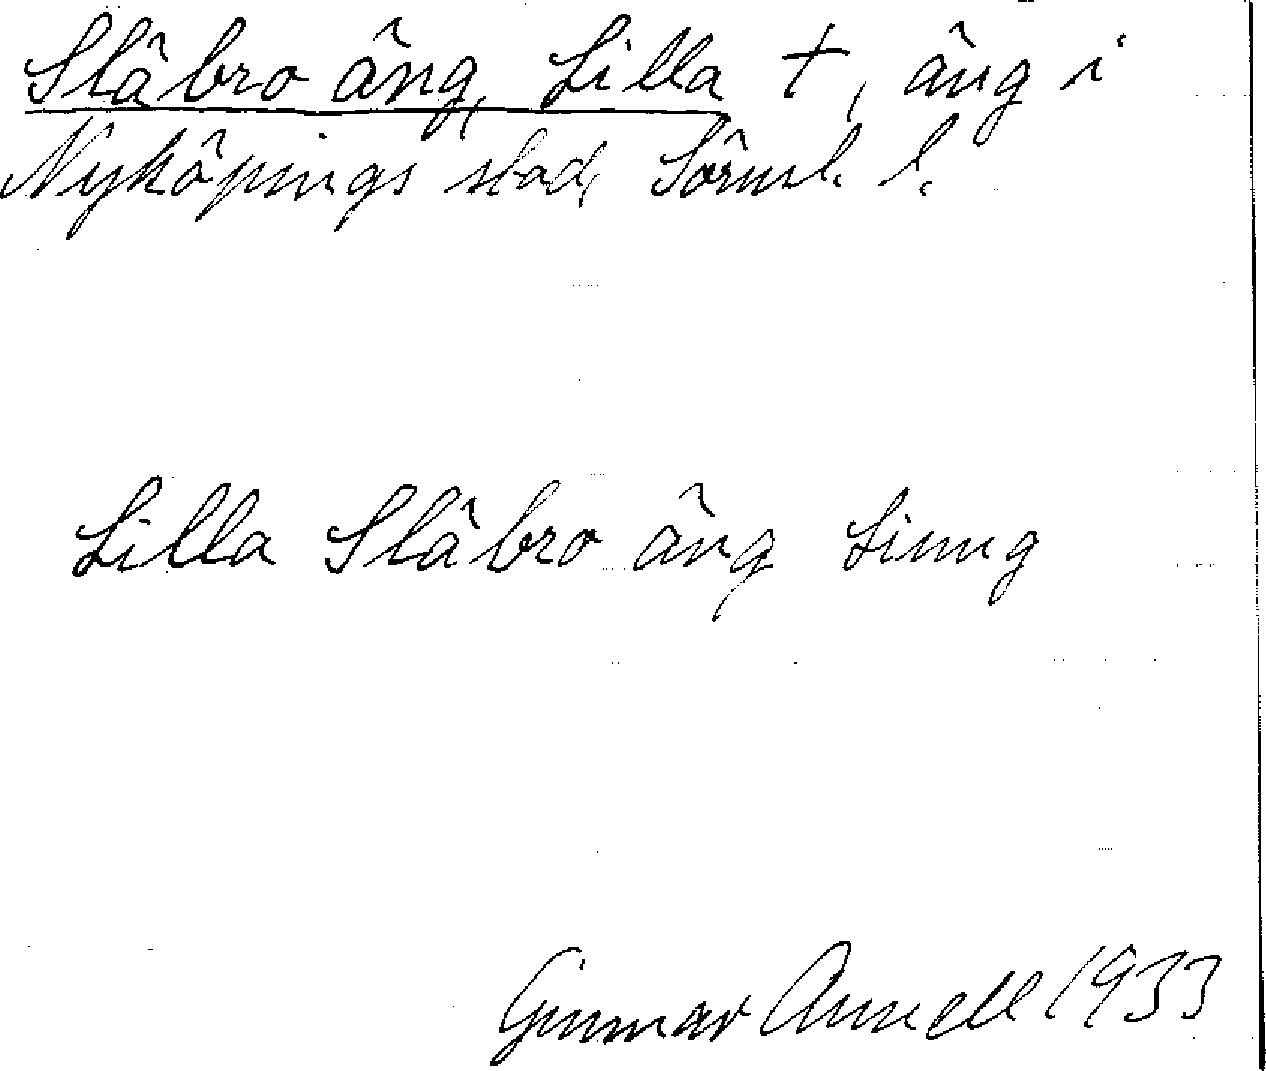 Slâbro äng, Lilla †, äng i
Nyköpings stad, Sörml. l.
Lilla Slâbro äng
Gunnar Annell 1933